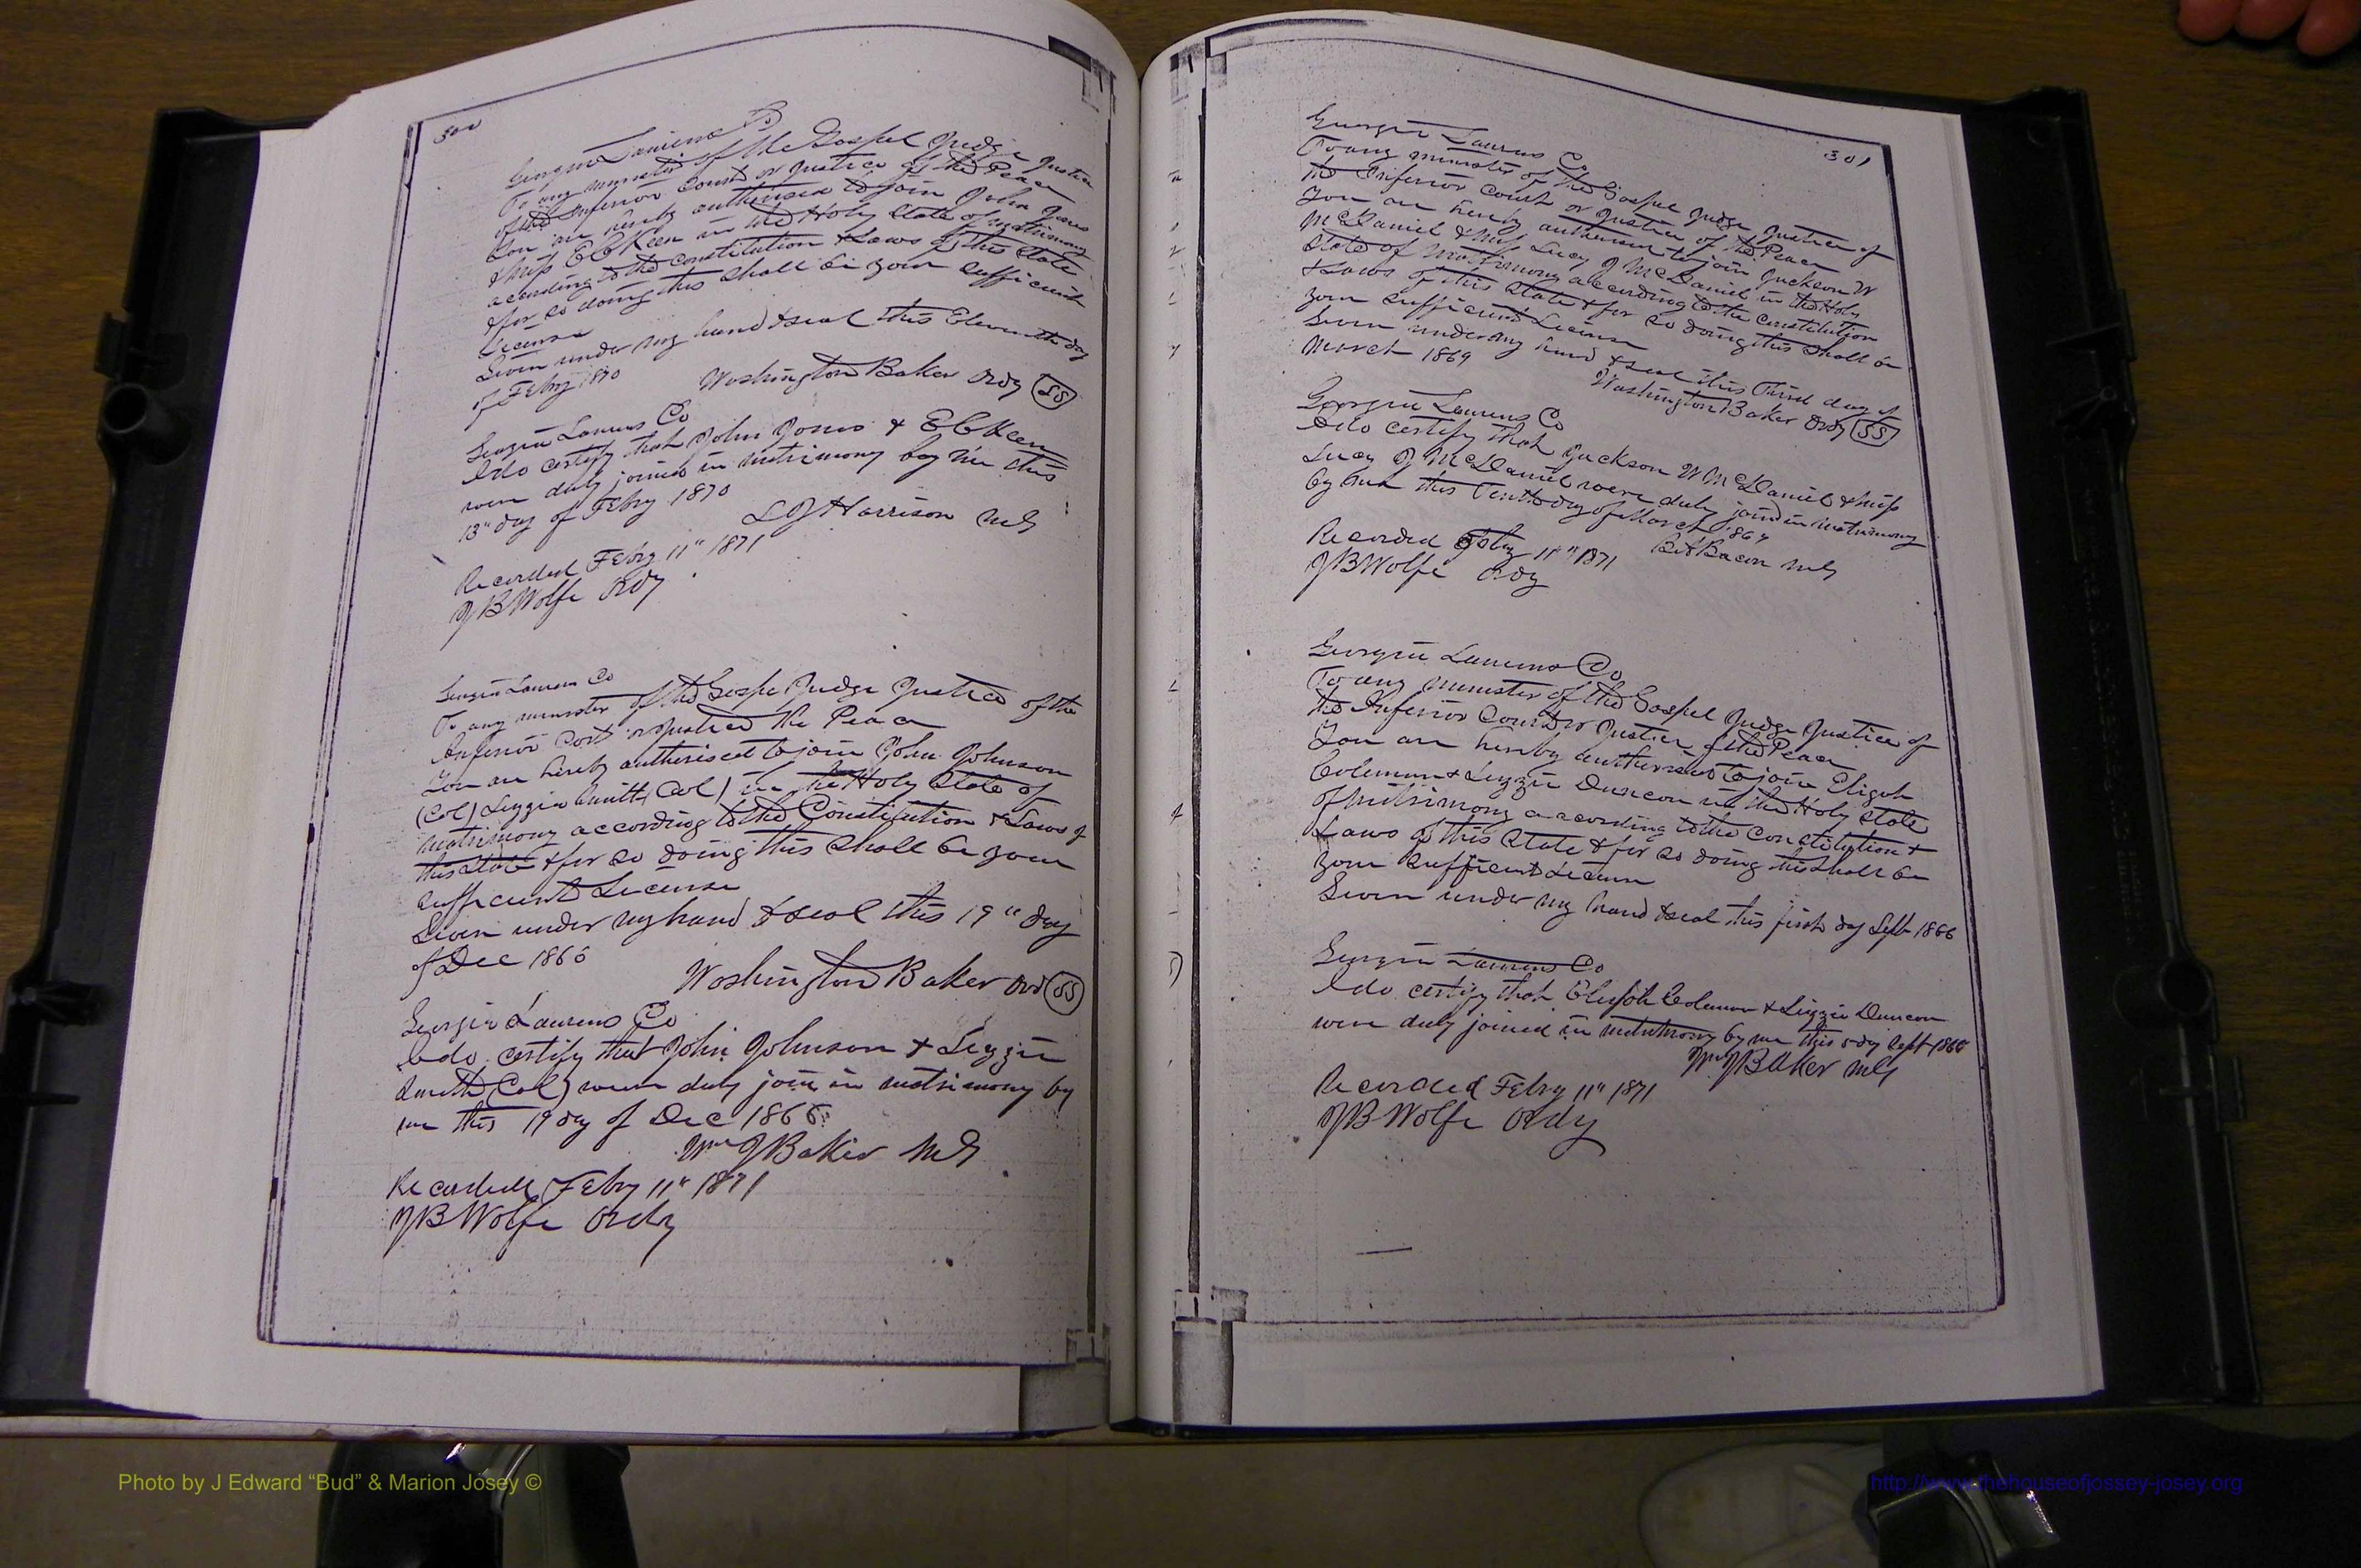 300
Georgia Laurens Co
To any minister of the Gospel Judge Justice
of the Inferior Court or Justice of the Peace
You are hereby authorised to join John Jones
& Miss E C Keen in the Holy State of matrimony
according to the Constitution & Laws of this State
& for so doing this shall be your sufficient
License
Given under my hand & seal this Eleventh day
of Febry 1870
Washington Baker Ordy SS
Georgia Laurens Co
I do certify that John Jones & E C Keen
were duly joined in matrimony by me this
13" day of Febry 1870
Harrison MG
Recorded Febry 11" 1871
JB Wolfe Ordy
Georgia Laurens Co
To any minister of the Gospe Judge Justice of the
Inferior Cort or Justice the Peace
You are hereby authorised to join John Johnson
(Col) Lizzie Smith (Col) in the Holy State of
matrimony according to the Constitution & Laws of
this State & for so doing this shall be your
sufficient License
Given under my hand & seal this 19" day
of Dec 1866
Washington Baker Ord SS
Georgia Laurens Co
I do certify that John Johnson & Lizzie
Smith (Col) were duly join in matrimony by
me this 19 day of Dec 1866
Wm J Baker MG
Recorded Febry 11" 1871
JB Wolfe Ordy
301
Georgia Laurens Co
To any minister of the Gospel Judge Justice of
the Inferior Court or Justice of the Peace
You are hereby authorised to join Jackson W
McDaniel & Miss Lucy J McDaniel in the Holy
State of matrimony according to the Constitution
& Laws of this State & for so doing this shall be
your sufficient License
Given under my hand & seal this Third day of
March 1869
Washington Baker Ordy SS
Georgia Laurens Co
I do certify that Jackson W McDaniel & Miss
Lucy J McDaniel were duly joind in matrimony
by me this Tenth day of March 1869
Bacon MG
Recorded Febry 11" 1871
JB Wolfe Ordy
Georgia Laurens Co
To any minister of the Gospel Judge Justice of
the Inferior Court or Justice of the Peace
You are hereby authorised to join Eligah
Coleman & Lizzie Duncan in the Holy State
of matrimony according to the Constitution &
Laws of this State & for so doing this shall be
your sufficient License
Given under my hand & seal this first day Sept 1866
Georgia Laurens Co
I do certify that Elijah Coleman & Lizzie Duncan
were duly joined in matrimony by me this day Sept 1866
Wm J Baker MG
Recorded Febry 11" 1871
JB Wolfe Ordy
Photo by J Edward “Bud” & Marion Josey ©
http://www.thehouseofjossey-josey.org